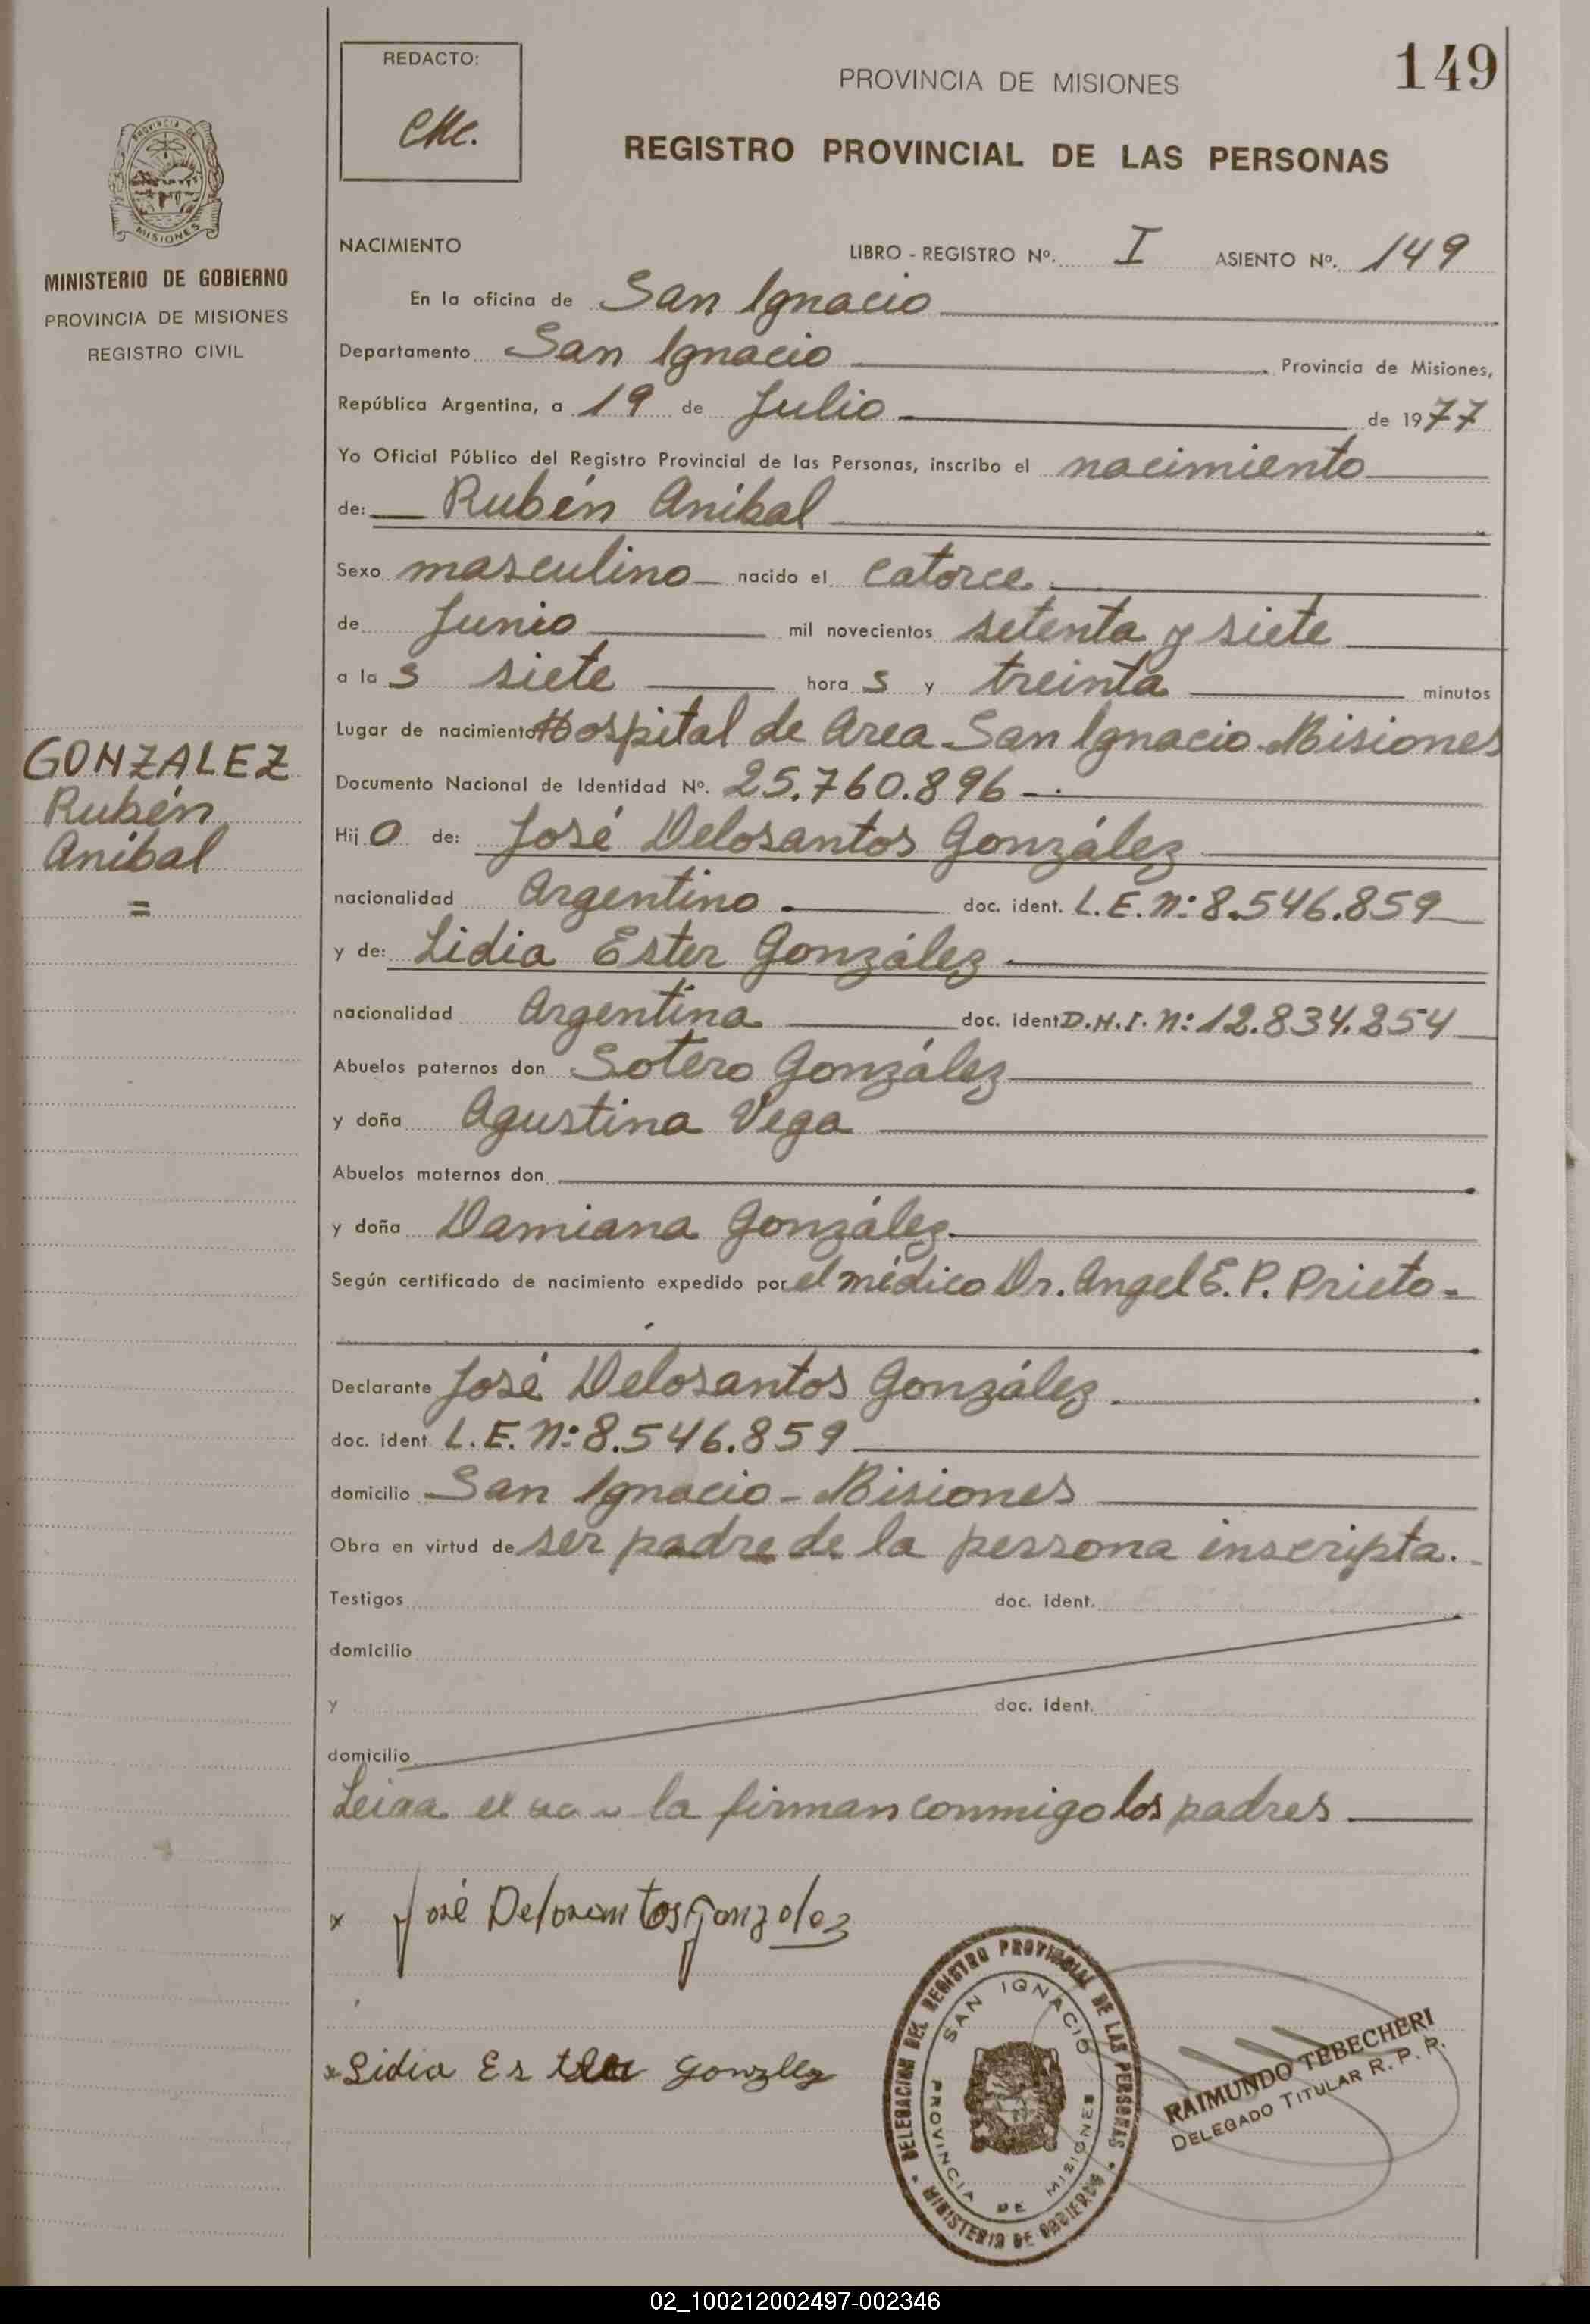 149
REDACTO:
PROVINCIA DE MISIONES
REGISTRO PROVINCIAL DE LAS PERSONAS
PROVINCIA DE
MISIONES
MINISTERIO DE GOBIERNO
PROVINCIA DE MISIONES
REGISTRO CIVIL
NACIMIENTO LIBRO - REGISTRO Nº. I ASIENTO Nº. 149
En la oficina de San Ignacio
Departamento San Ignacio Provincia de Misiones,
República Argentina, a 19 de Julio de 1977
Yo Oficial Público del Registro Provincial de las Personas, inscribo el nacimiento
de: Rubén Anibal
Sexo masculino nacido el catorce
de Junio mil novecientos setenta y siete
a las siete horas y treinta minutos
Lugar de nacimiento Hospital de Area San Ignacio Misiones
GONZALEZ
Rubén
Anibal
=
Documento Nacional de Identidad Nº. 25.760.896
Hijo de: José Delosantos González
nacionalidad Argentino doc. ident. L.E. Nº: 8.546.859
y de: Lidia Ester González
nacionalidad Argentina doc. ident D.N.I. Nº: 12.834.254
Abuelos paternos don Sotero González
y doña Agustina Vega
Abuelos maternos don
y doña Damiana González
Según certificado de nacimiento expedido por el médico Dr. Angel E. P. Prieto
Declarante José Delosantos González
doc. ident. L.E. Nº: 8.546.859
domicilio San Ignacio - Misiones
Obra en virtud de ser padre de la persona inscripta.
Testigos doc. ident.
domicilio
y doc. ident.
domicilio
la firman conmigo los padres
x José Delosantos Gonzalez
x Lidia Gonzlez
DELEGACION DEL REGISTRO PROVINCIAL DE LAS PERSONAS
SAN IGNACIO
PROVINCIA DE MISIONES
MINISTERIO DE GOBIERNO
RAIMUNDO TEBECHERI
DELEGADO TITULAR R. P. P.
02_100212002497-002346